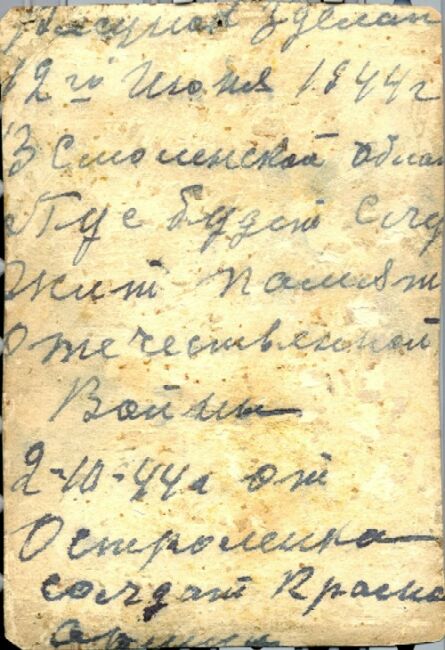 Рисунок зделан
12го Июня 1944г
в Смоленской облас
Пус будет слу
жит Памят
Отечественной
Войны
2-10-44г от
Остроленка
солдат Красно
Армии